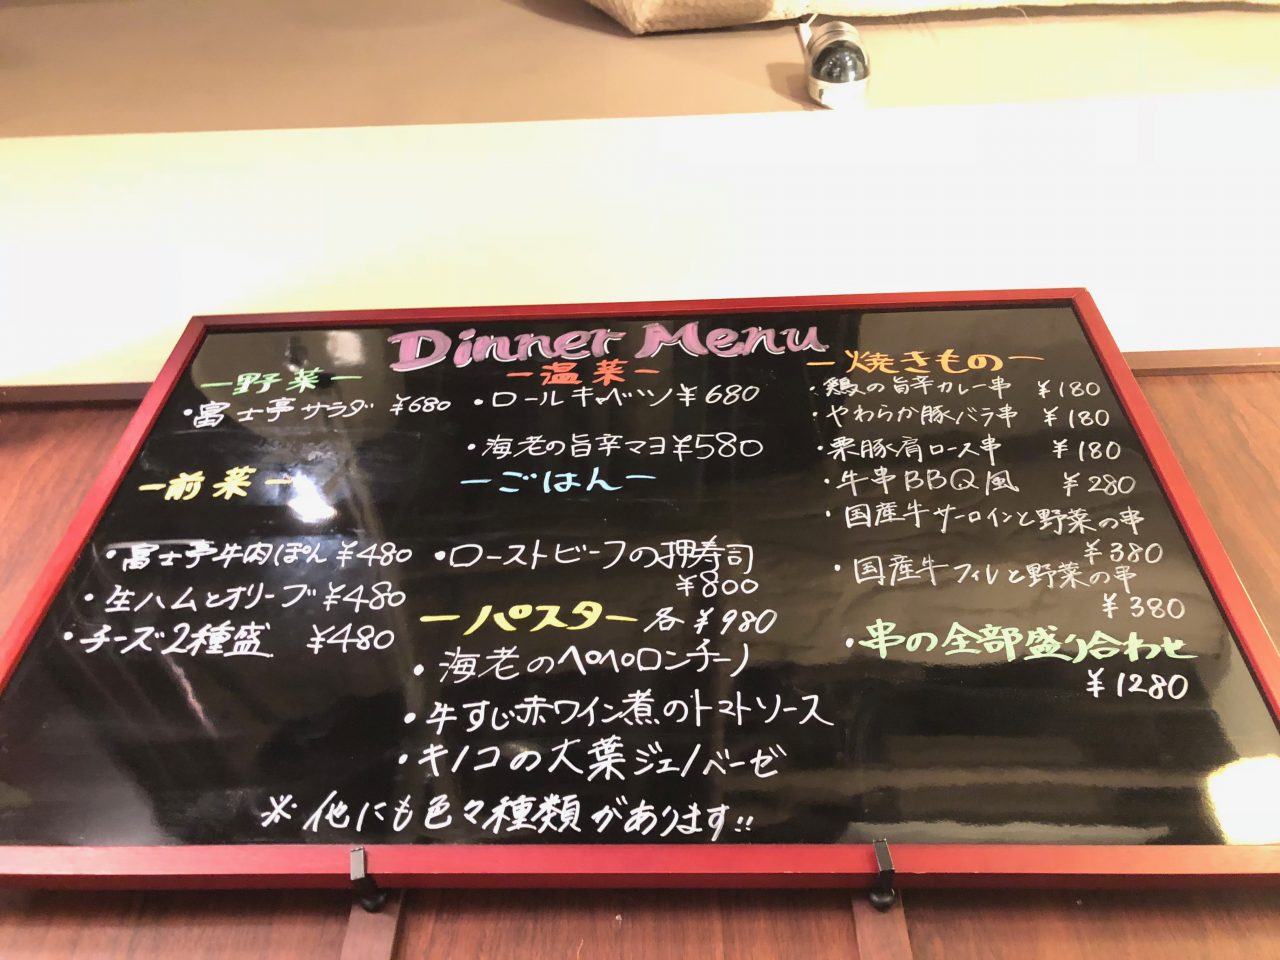 Dinner Menu
ー野菜ー
・富士亭サラダ ¥680
ー前菜ー
・富士亭牛肉ぽん ¥480
・生ハムとオリーブ ¥480
・チーズ2種盛 ¥480
ー温菜ー
・ロールキャベツ ¥680
・海老の旨辛マヨ ¥580
ーごはんー
・ローストビーフの押寿司
¥800
ーパスターー 各¥980
・海老のペペロンチーノ
・牛すじ赤ワイン煮のトマトソース
・キノコの大葉ジェノベーゼ
ー焼きものー
・鶏の旨辛カレー串 ¥180
・やわらか豚バラ串 ¥180
・栗豚肩ロース串 ¥180
・牛串BBQ風 ¥280
・国産牛サーロインと野菜の串
¥380
・国産牛フィレと野菜の串
¥380
・串の全部盛り合わせ
¥1280
※他にも色々種類があります!!